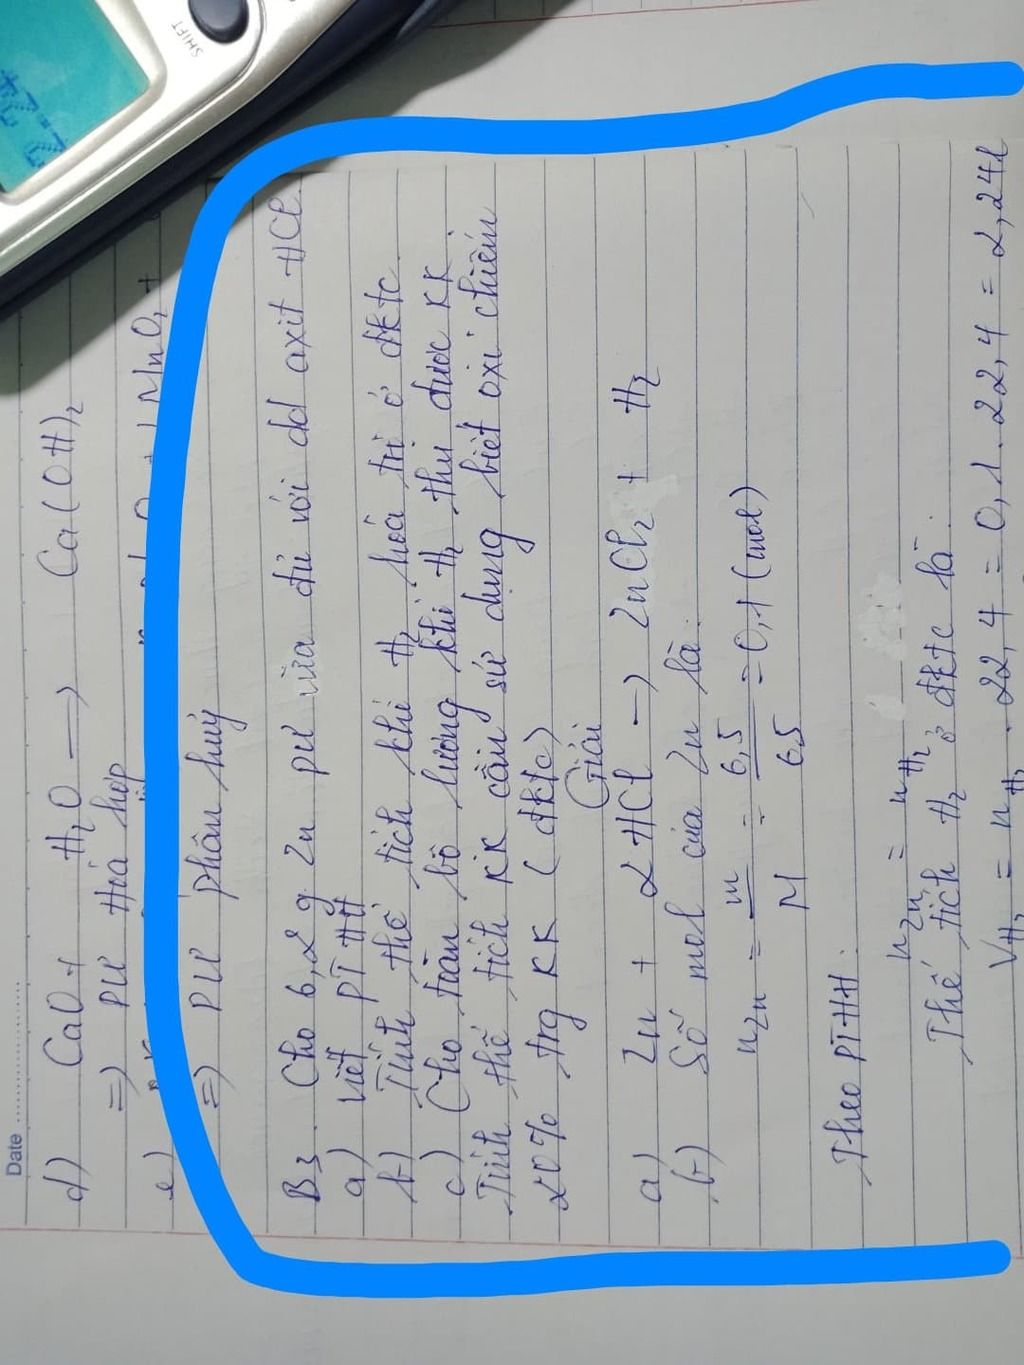 SHIFT
Date
d) CaO + H₂O → Ca(OH)₂
=) PƯ Hoá hợp
e)
MnO₂ +
=) PƯ phân huỷ
B3. Cho 6,2 g Zn pư vừa đủ với dd axit HCl.
a) viết PTHH
b) Tính thể tích khí H₂ thoát ra ở đktc
c) Cho toàn bộ lượng khí H₂ thu được KK
Tính thể tích KK cần sử dụng biết oxi chiếm
20% trg KK (đktc)
Giải
a) Zn + 2HCl → ZnCl₂ + H₂
b) Số mol của Zn là:
nZn = m/M = 6,5/65 = 0,1 (mol)
Theo PTHH:
nZn = nH₂
Thể tích H₂ ở đktc là:
VH₂ = nH₂ . 22,4 = 0,1 . 22,4 = 2,24l